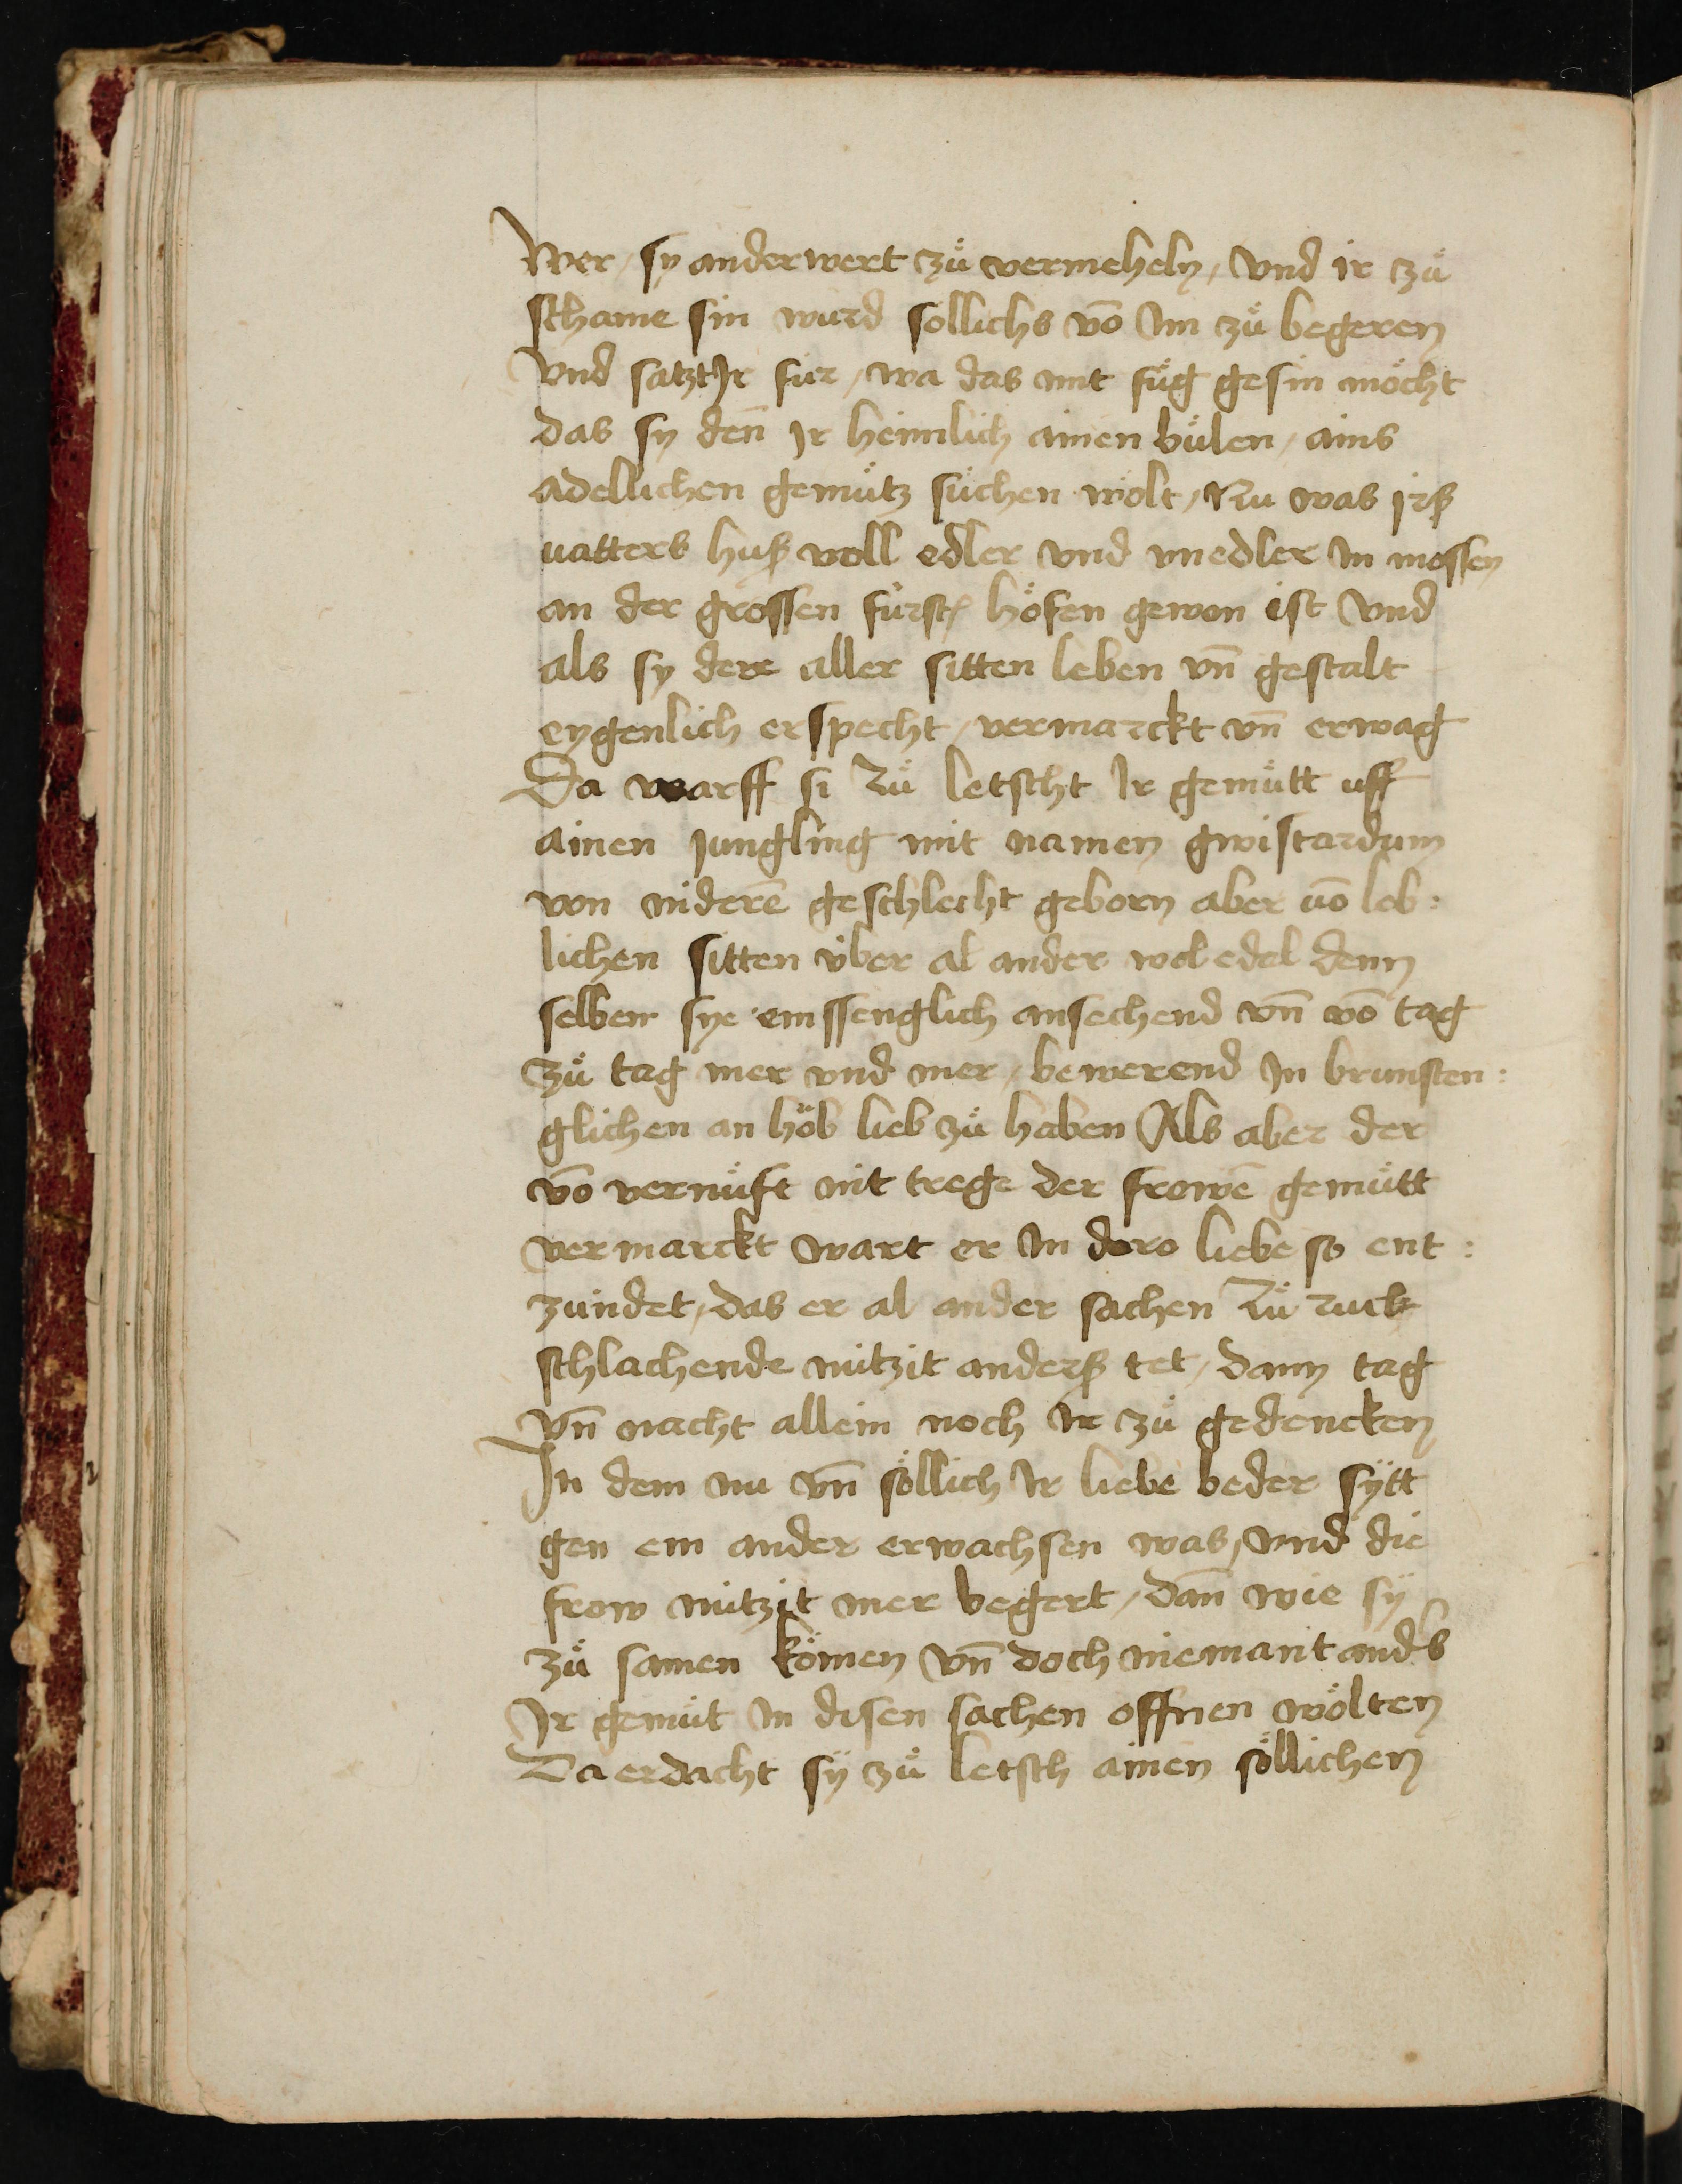 Wer / sy anderwert zů vermeheln / vnd ir zů
schame sin wurd sollichs vō Im zů begeren
vnd satzt Ir für / wa das mit fůg gesin möcht
das sy deñ Ir heimlich ainen bůlen / ains
adellichen gemůtz sůchen wolt / Nu was irß
vatters huß voll edler vnd vnedler In mossen
an der grossen fürstē höfen gewon ist vnd
als sy dere aller sitten leben vn̄ gestalt
eygenlich erspecht / vermarckt vn̄ erwag
Da warff si zů letscht Ir gemůtt uff
ainen Jungling mit namen gwistardum
von niderē geschlecht geborn aber vō lob:
lichen sitten über al ander wol edel denn
selben sye emssenglich ansechend vn̄ vō tag
zů tag mer vnd mer / bewerend In brunsten:
glichen an hůb lieb zů haben Als aber der
vō vernuft nit trege der frowē gemůtt
vermarckt wart er In dero liebe so ent:
zündet / das er al ander sachen zů ruck
schlachende nützit anderß tet / dann tag
vn̄ nacht allein noch Ir zů gedencken
In dem nu vn̄ söllich Ir liebe beder sÿtt
gen ein ander erwachsen was / vnd die
frow nützit mer begert / dañ wie sÿ
zů samen kömen vn̄ doch niemant and's
Ir gemůt In disen sachen offnen wölten
Da erdacht sÿ zů letsch ainen söllichen